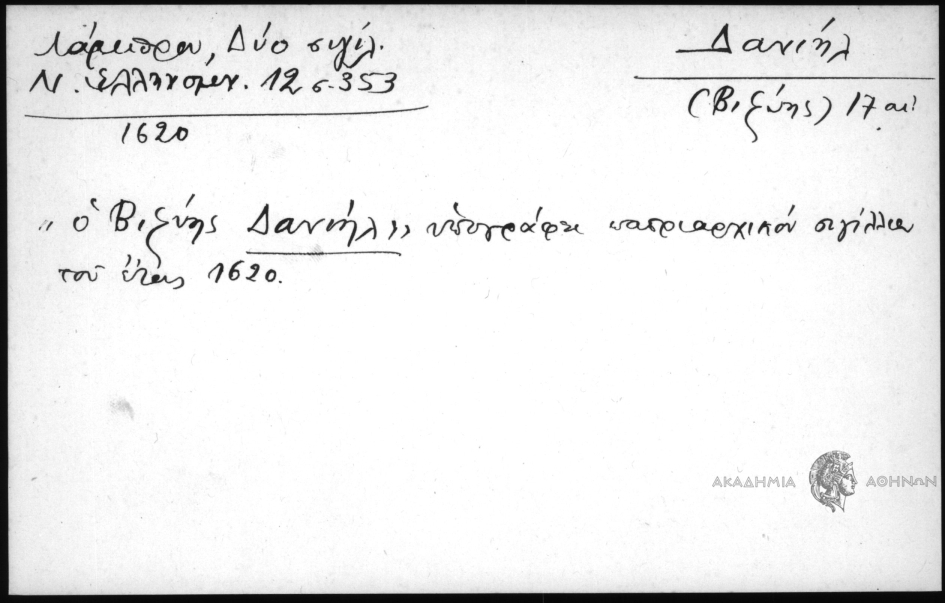 Λάμπρου, Δύο σιγίλ.
Ν. Ἑλληνομν. 12 σ. 353
1620
Δανιήλ
(Βιζύης) 17 αἰ
„ ὁ Βιζύης Δανιήλ” ὑπογράφει πατριαρχικόν σιγίλλιον
τοῦ ἔτους 1620.
ΑΚΑΔΗΜΙΑ ΑΘΗΝΩΝ